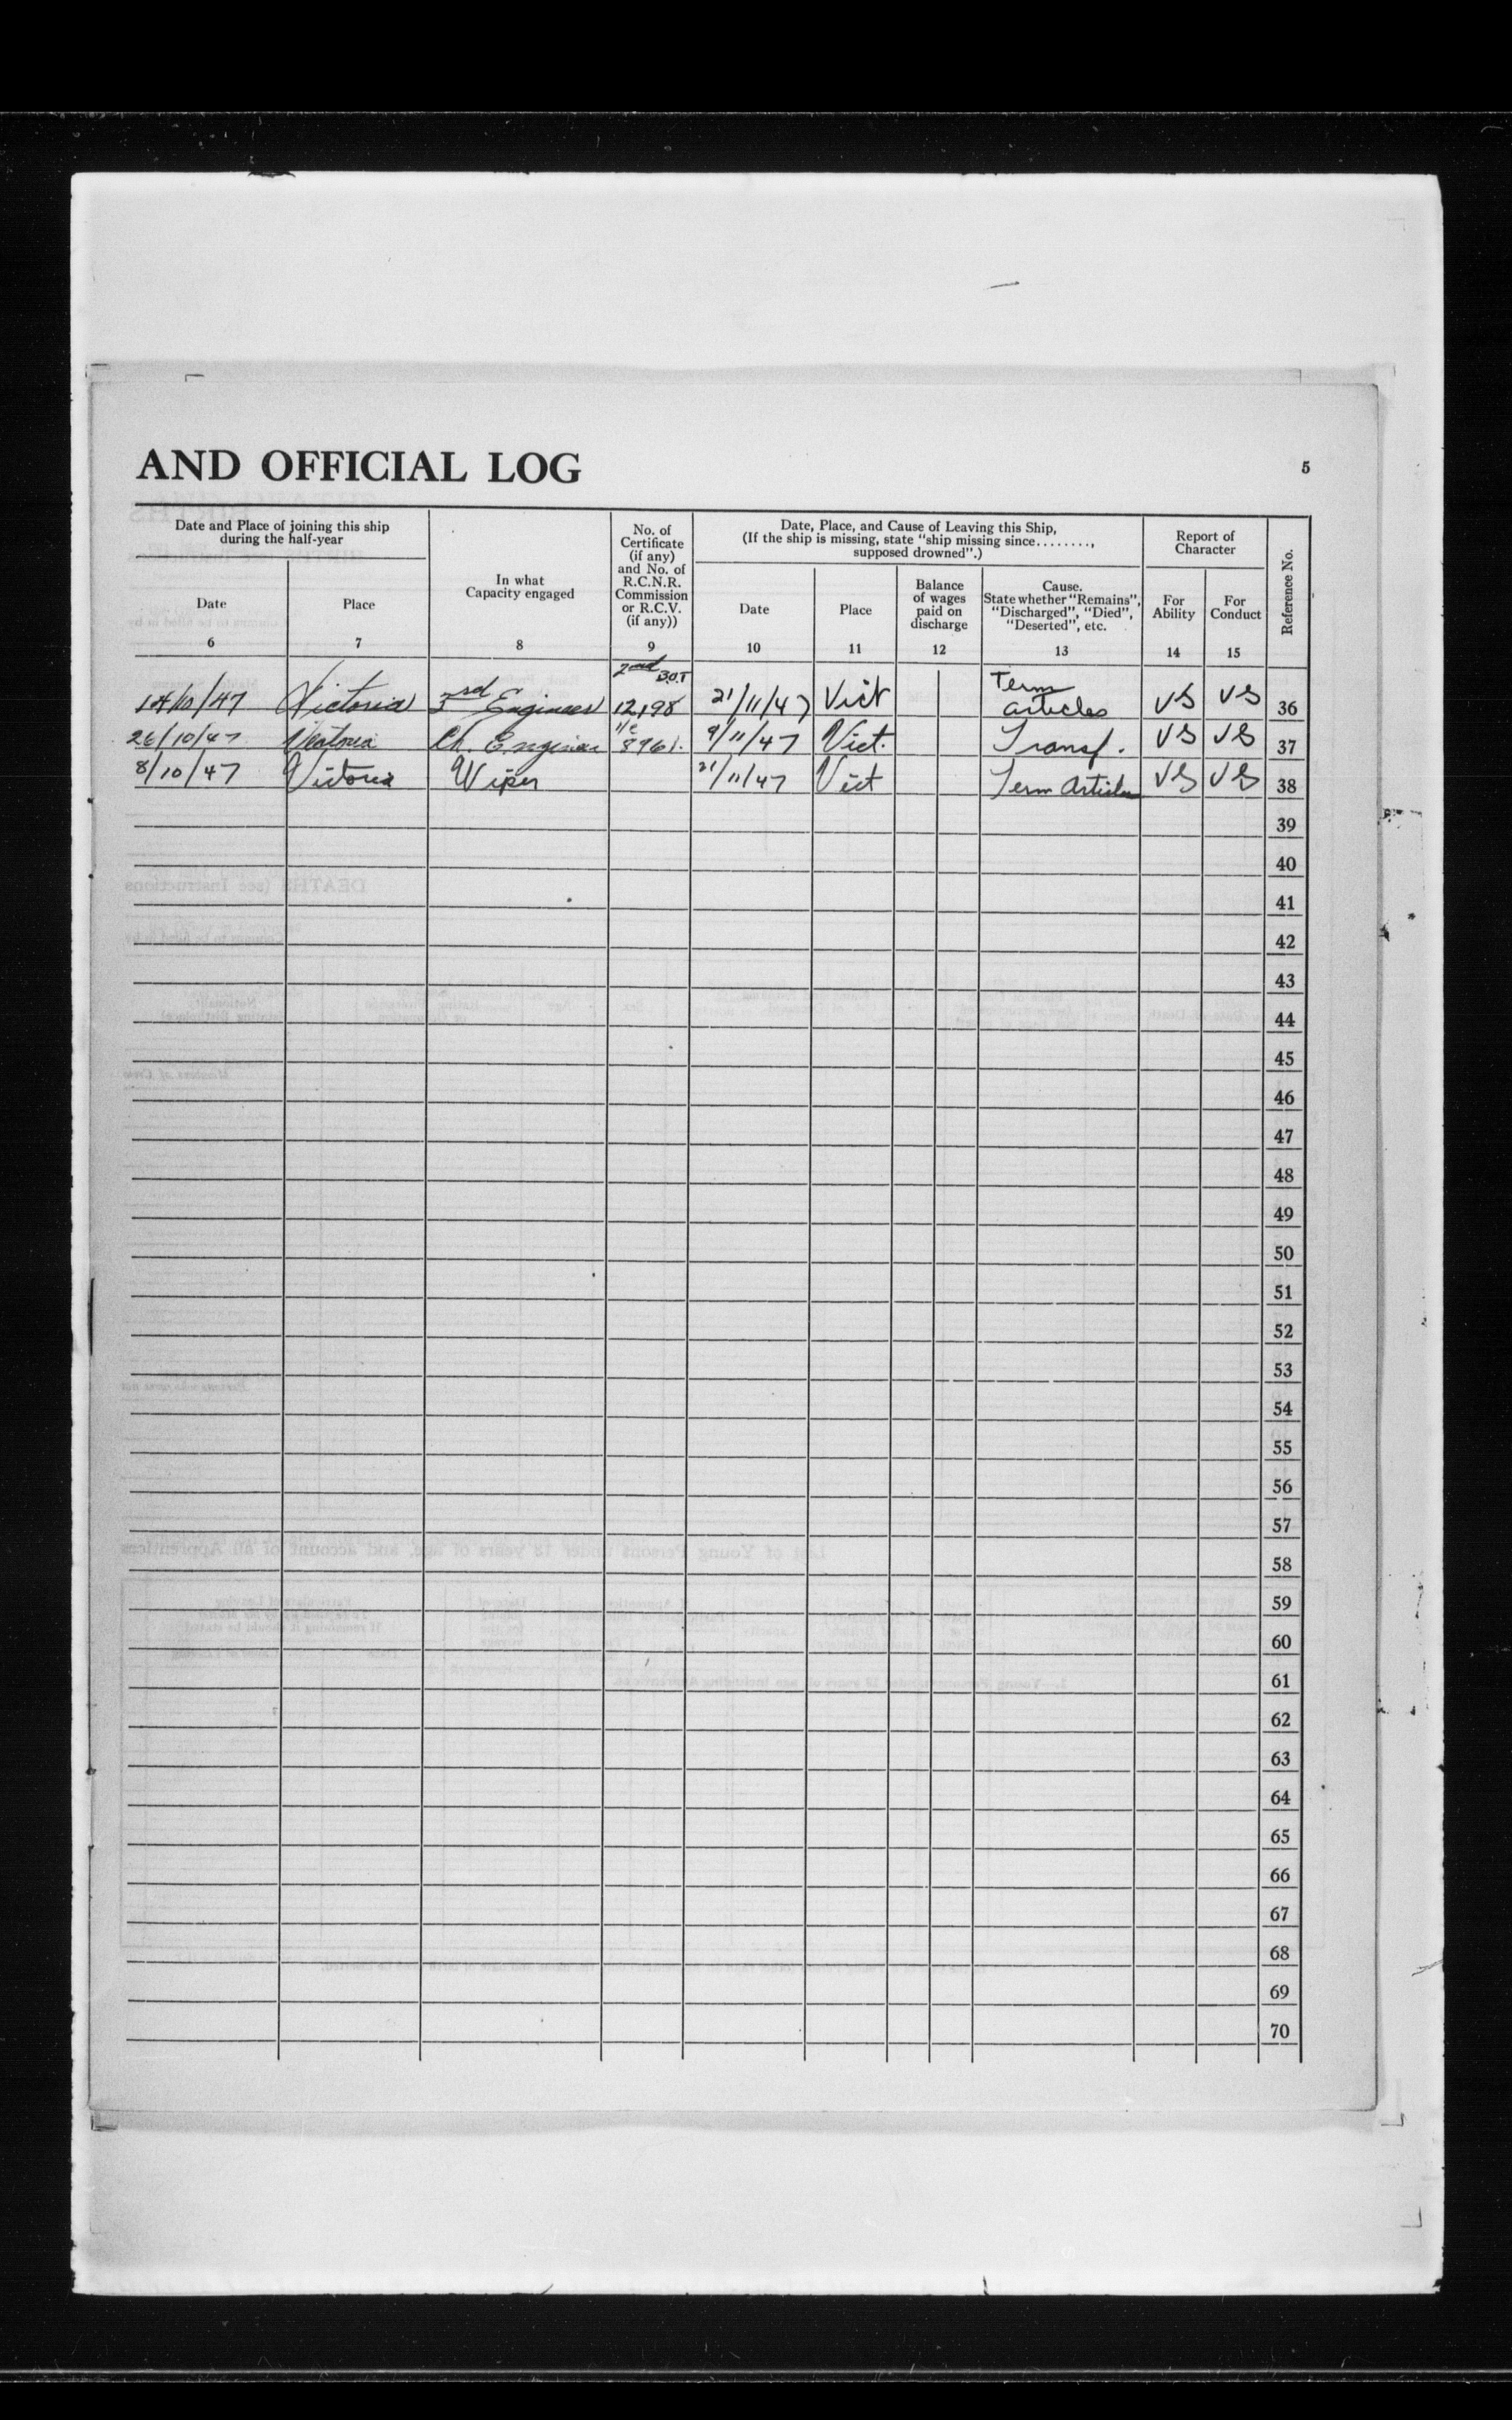 AND OFFICIAL LOG
5
Date and Place of joining this ship
during the half-year
Date
6
Place
7
In what
Capacity engaged
8
No. of
Certificate
(if any)
and No. of
R.C.N.R.
Commission
or R.C.V.
(if any))
9
Date, Place, and Cause of Leaving this Ship,
(If the ship is missing, state "ship missing since........,
supposed drowned".)
Date
10
Place
11
Balance
of wages
paid on
discharge
12
Cause.
State whether "Remains",
"Discharged", "Died",
"Deserted", etc.
13
Report of
Character
For
Ability
14
For
Conduct
15
Reference No.
2nd B.O.T
Term
14/10/47 Victoria 3rd Engineer 12198 21/11/47 Vict articles VG VG 36
26/10/47 Victoria Ch. Engineer 8961. 9/11/47 Vict. Transf. VG VG 37
8/10/47 Victoria Wiper 21/11/47 Vict Term Articles VG VG 38
39
40
41
42
43
44
45
46
47
48
49
50
51
52
53
54
55
56
57
58
59
60
61
62
63
64
65
66
67
68
69
70